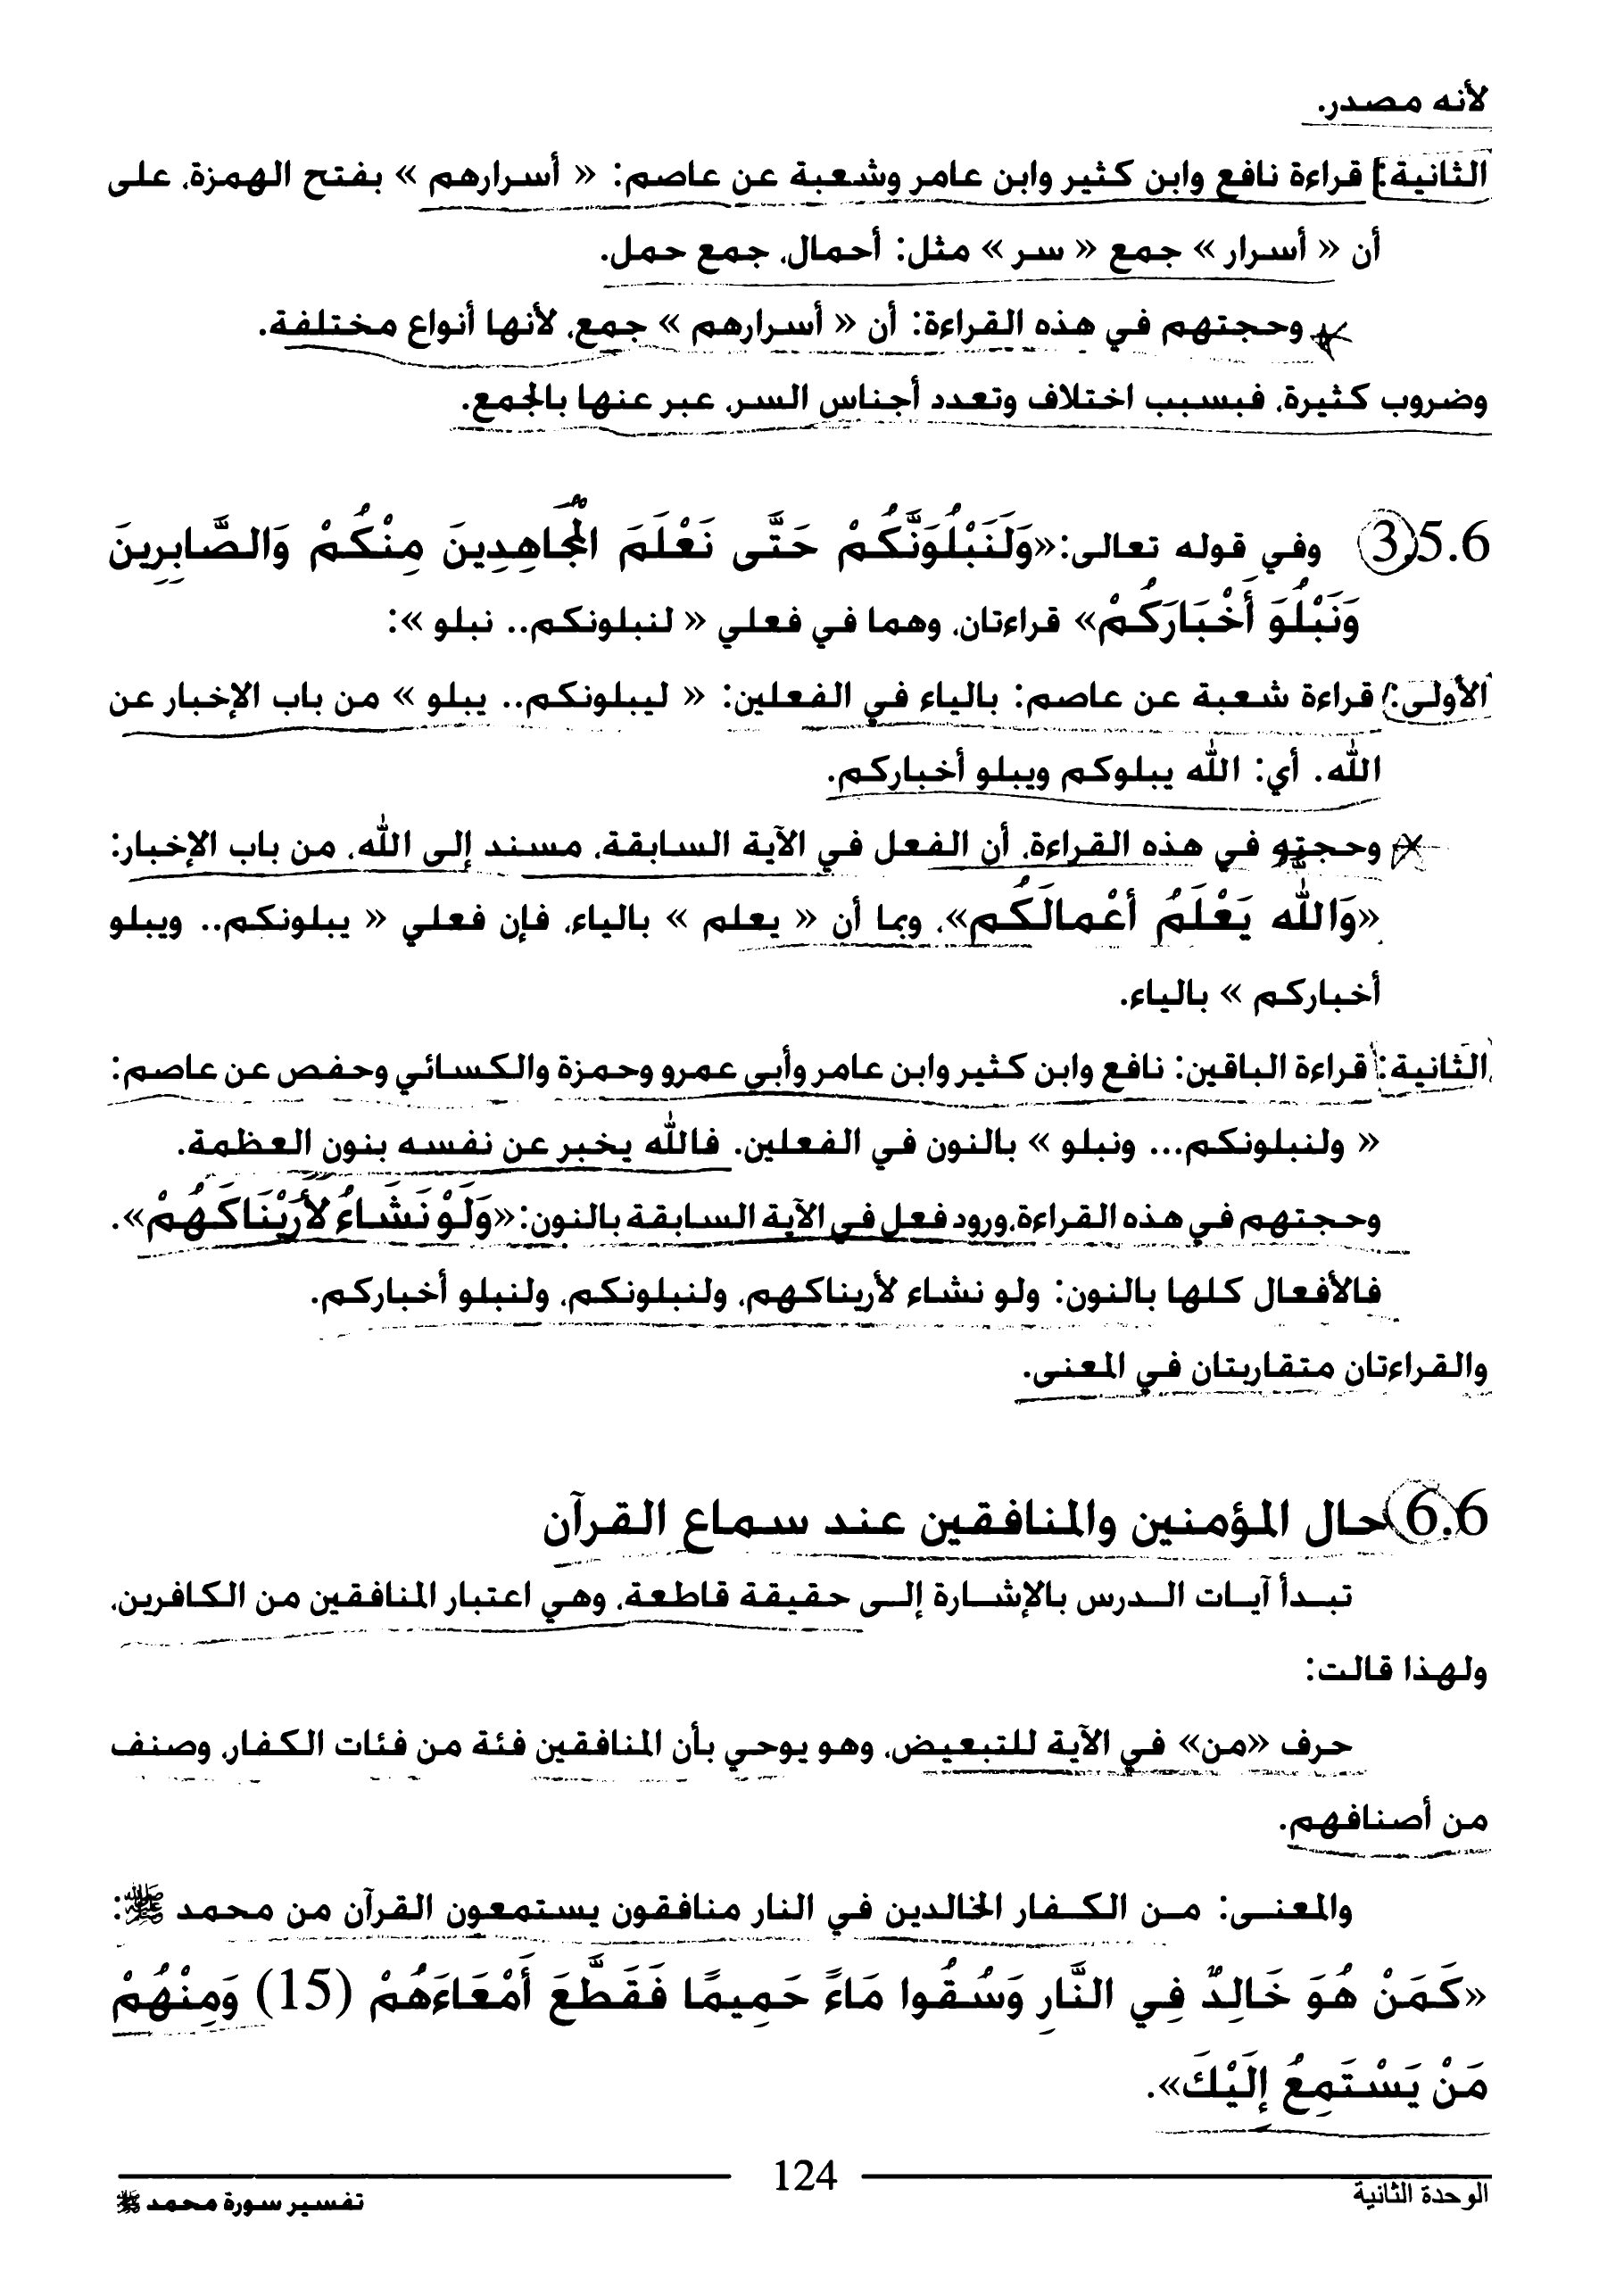 لأنه مصدر.
الثانية: قراءة نافع وابن كثير وابن عامر وشعبة عن عاصم: « أسرارهم » بفتح الهمزة، على
أن « أسرار » جمع « سر » مثل: أحمال، جمع حمل.
وحجتهم في هذه القراءة: أن « أسرارهم » جمع، لأنها أنواع مختلفة.
وضروب كثيرة، فبسبب اختلاف وتعدد أجناس السر، عبر عنها بالجمع.
3.5.6 وفي قوله تعالى:«وَلَنَبْلُوَنَّكُمْ حَتَّى نَعْلَمَ الْمُجَاهِدِينَ مِنْكُمْ وَالصَّابِرِينَ
وَنَبْلُوَ أَخْبَارَكُمْ» قراءتان، وهما في فعلي « لنبلونكم.. نبلو »:
الأولى: قراءة شعبة عن عاصم: بالياء في الفعلين: « ليبلونكم.. يبلو » من باب الإخبار عن
الله. أي: الله يبلوكم ويبلو أخباركم.
وحجته في هذه القراءة، أن الفعل في الآية السابقة، مسند إلى الله، من باب الإخبار:
«وَاللَّه يَعْلَمُ أَعْمالَكُم»، وبما أن « يعلم » بالياء، فإن فعلي « يبلونكم.. ويبلو
أخباركم » بالياء.
الثانية: قراءة الباقين: نافع وابن كثير وابن عامر وأبي عمرو وحمزة والكسائي وحفص عن عاصم:
« ولنبلونكم... ونبلو » بالنون في الفعلين. فالله يخبر عن نفسه بنون العظمة.
وحجتهم في هذه القراءة،ورود فعل في الآية السابقة بالنون:«وَلَوْ نَشَاءُ لأَرَيْنَاكَهُمْ».
فالأفعال كلها بالنون: ولو نشاء لأريناكهم، ولنبلونكم، ولنبلو أخباركم.
والقراءتان متقاربتان في المعنى.
6.6 حال المؤمنين والمنافقين عند سماع القرآن
تبدأ آيات الدرس بالإشارة إلى حقيقة قاطعة، وهي اعتبار المنافقين من الكافرين،
ولهذا قالت:
حرف «من» في الآية للتبعيض، وهو يوحي بأن المنافقين فئة من فئات الكفار، وصنف
من أصنافهم.
والمعنى: من الكفار الخالدين في النار منافقون يستمعون القرآن من محمد ﷺ:
«كَمَنْ هُوَ خَالِدٌ فِي النَّارِ وَسُقُوا مَاءً حَمِيمًا فَقَطَّعَ أَمْعَاءَهُمْ (15) وَمِنْهُمْ
مَنْ يَسْتَمِعُ إِلَيْكَ».
124
الوحدة الثانية
تفسير سورة محمد ﷺ